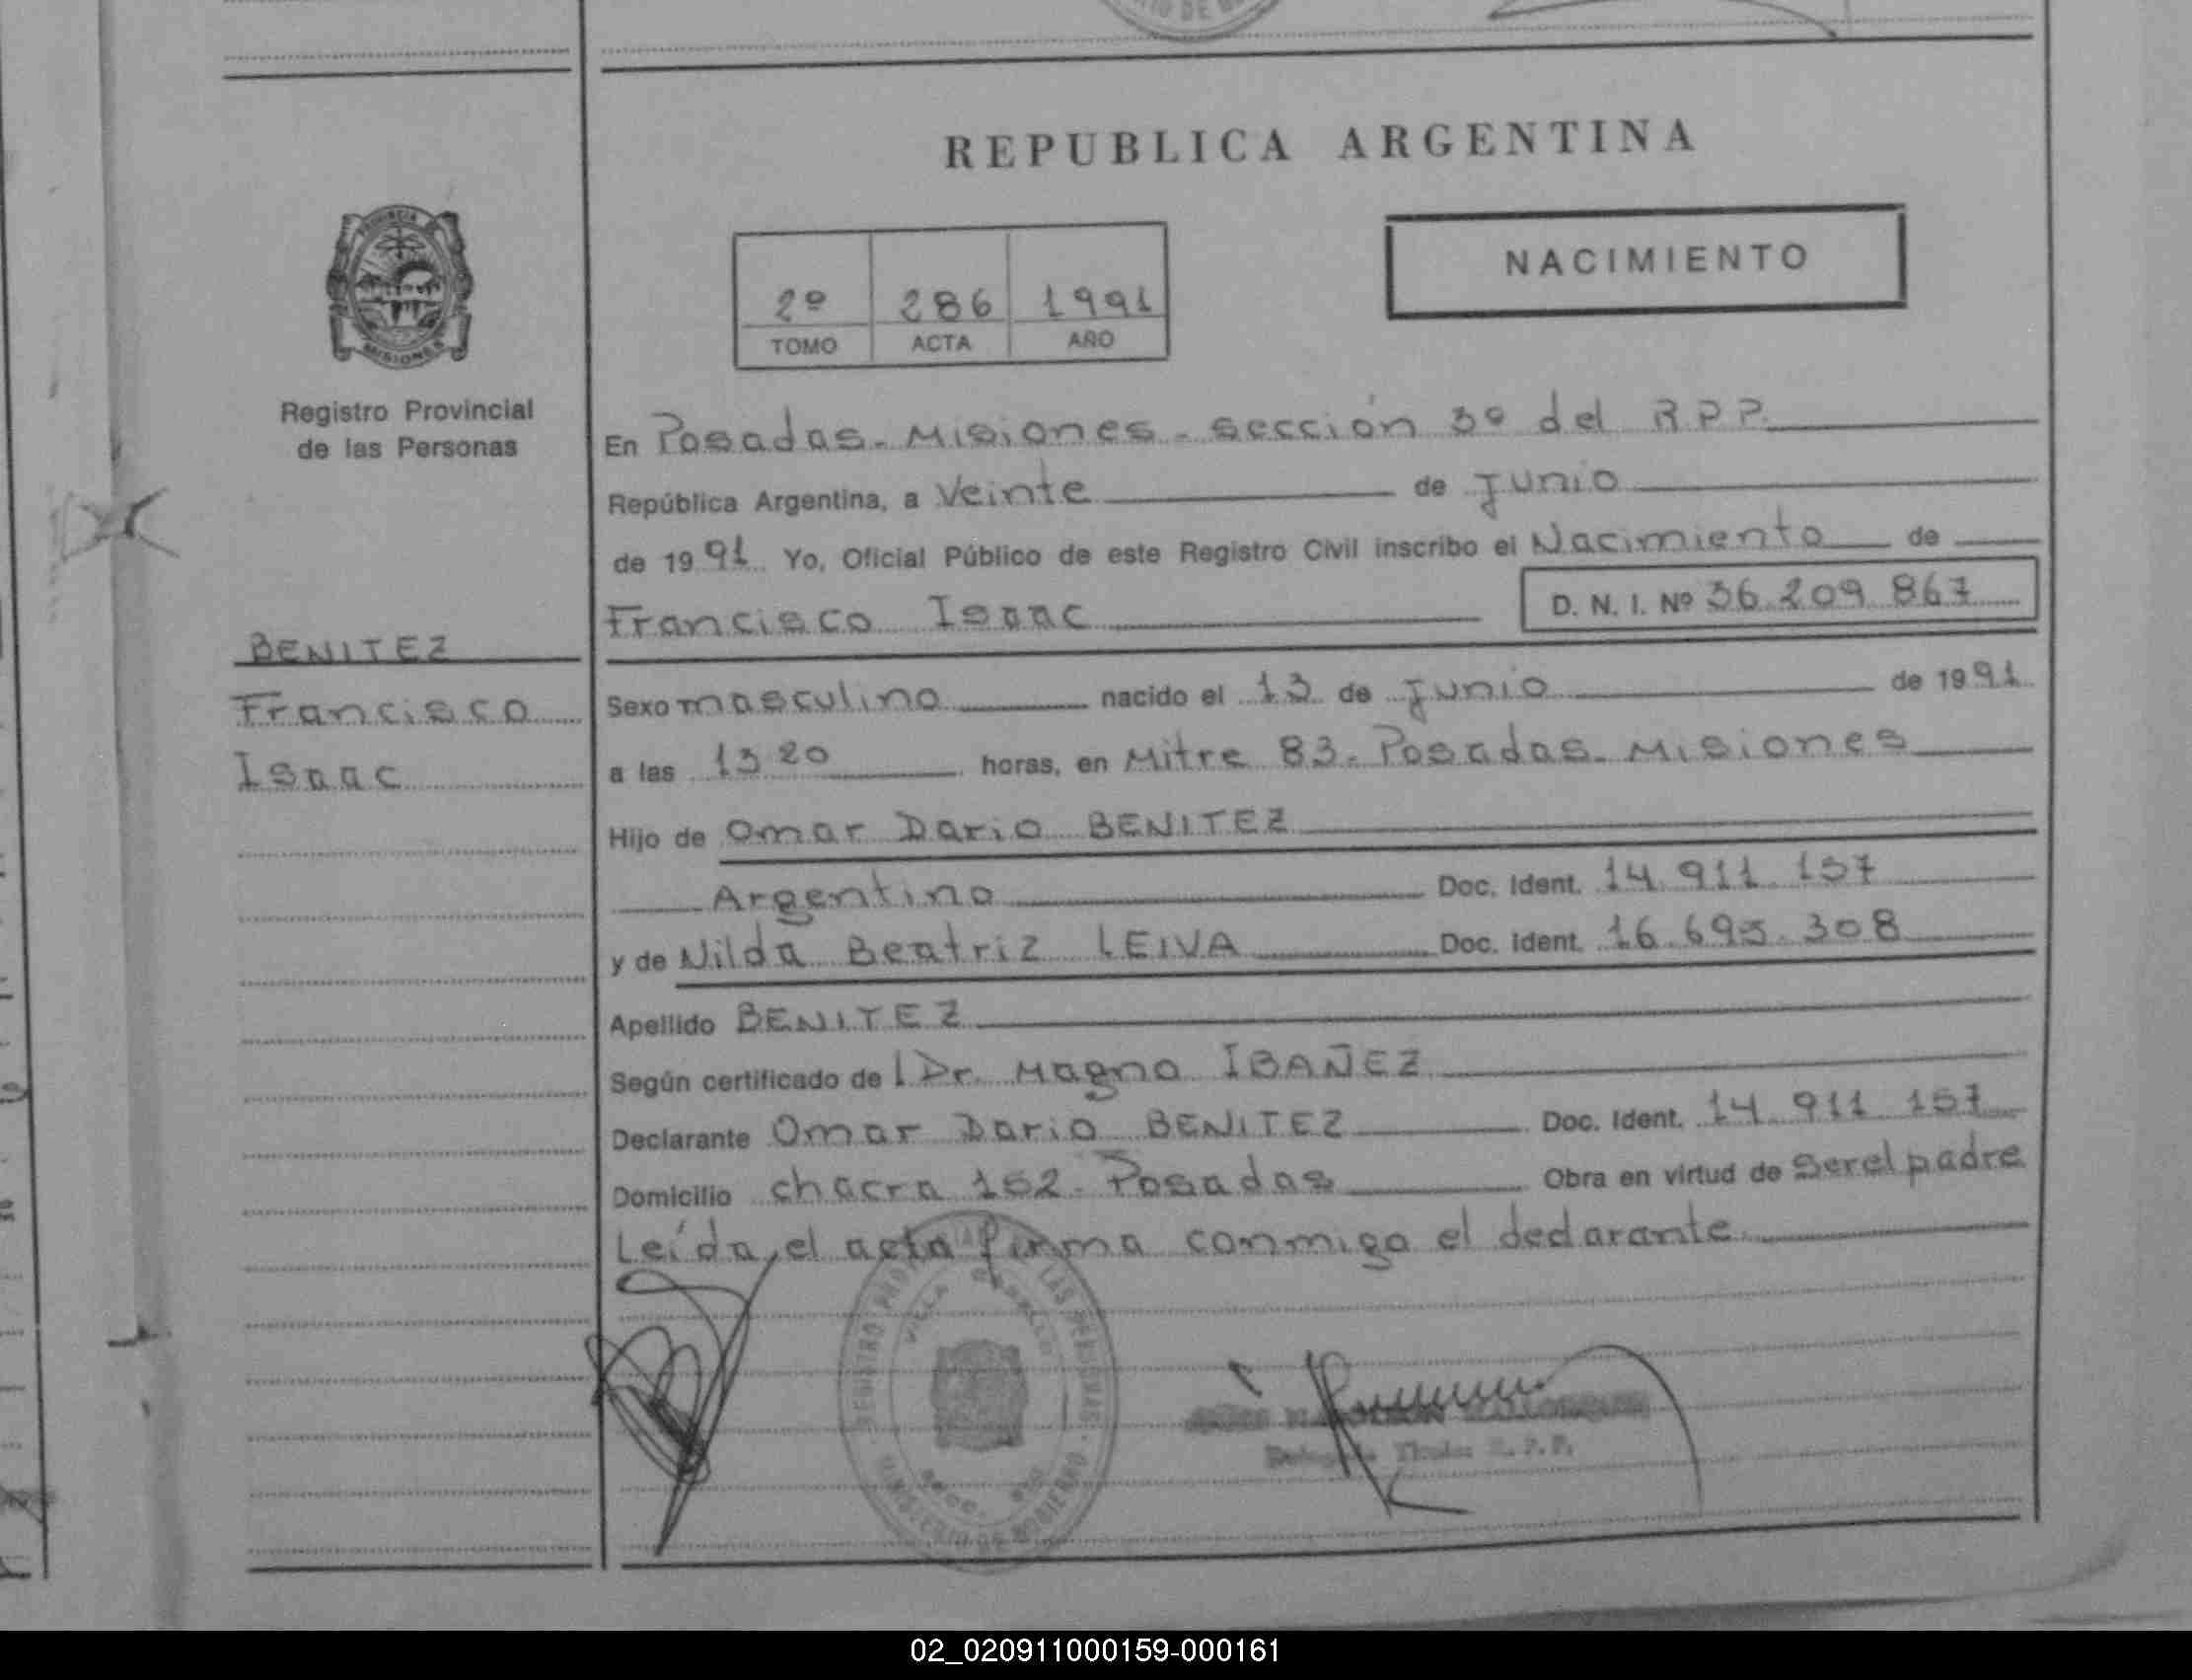 REPUBLICA ARGENTINA
NACIMIENTO
2º 286 1991
TOMO ACTA AÑO
PROVINCIA
MISIONES
Registro Provincial
de las Personas
BENITEZ
Francisco
Isaac
En Posadas - Misiones - sección 3º del R P P.
República Argentina, a Veinte de Junio
de 1991 Yo, Oficial Público de este Registro Civil inscribo el Nacimiento de
Francisco Isaac D. N. I. Nº 36.209.867
Sexo masculino nacido el 13 de Junio de 1991
a las 13 20 horas, en Mitre 83 - Posadas - Misiones
Hijo de Omar Dario BENITEZ
Argentino Doc. Ident. 14.911.157
y de Nilda Beatriz LEIVA Doc. Ident. 16.695.308
Apellido BENITEZ
Según certificado de l Dr. Magno IBAÑEZ
Declarante Omar Dario BENITEZ Doc. Ident. 14.911.157
Domicilio chacra 152 - Posadas Obra en virtud de ser el padre
Leída el acta firma conmigo el declarante
REGISTRO LAS PERSONAS
VILLA
MINISTERIO DE GOBIERNO
Titular R. P. P.
02_020911000159-000161